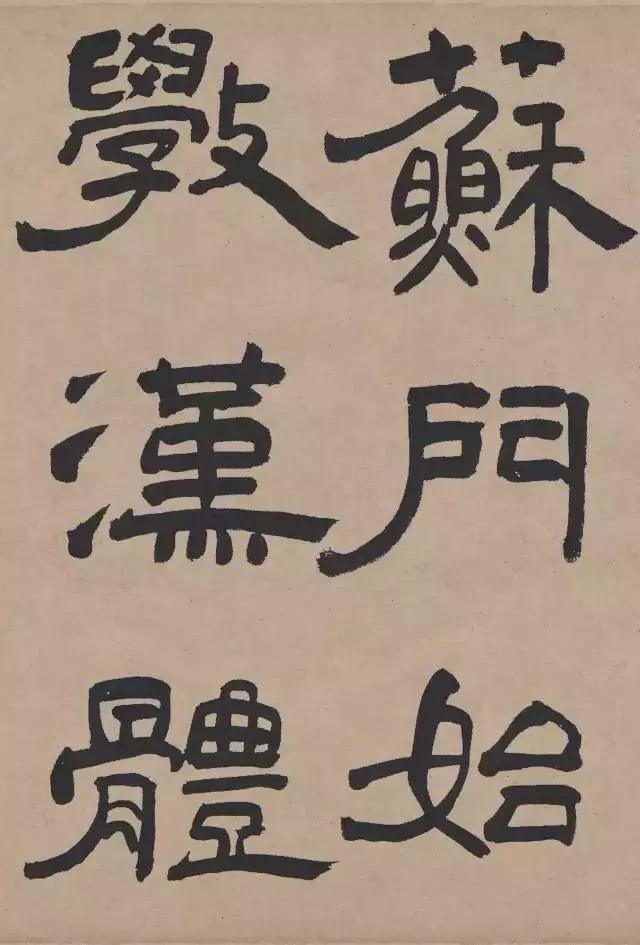 蘇門始
斅漢體